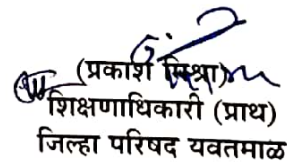 (प्रकाश मिश्रा)
शिक्षणाधिकारी (प्राथ)
जिल्हा परिषद यवतमाळ